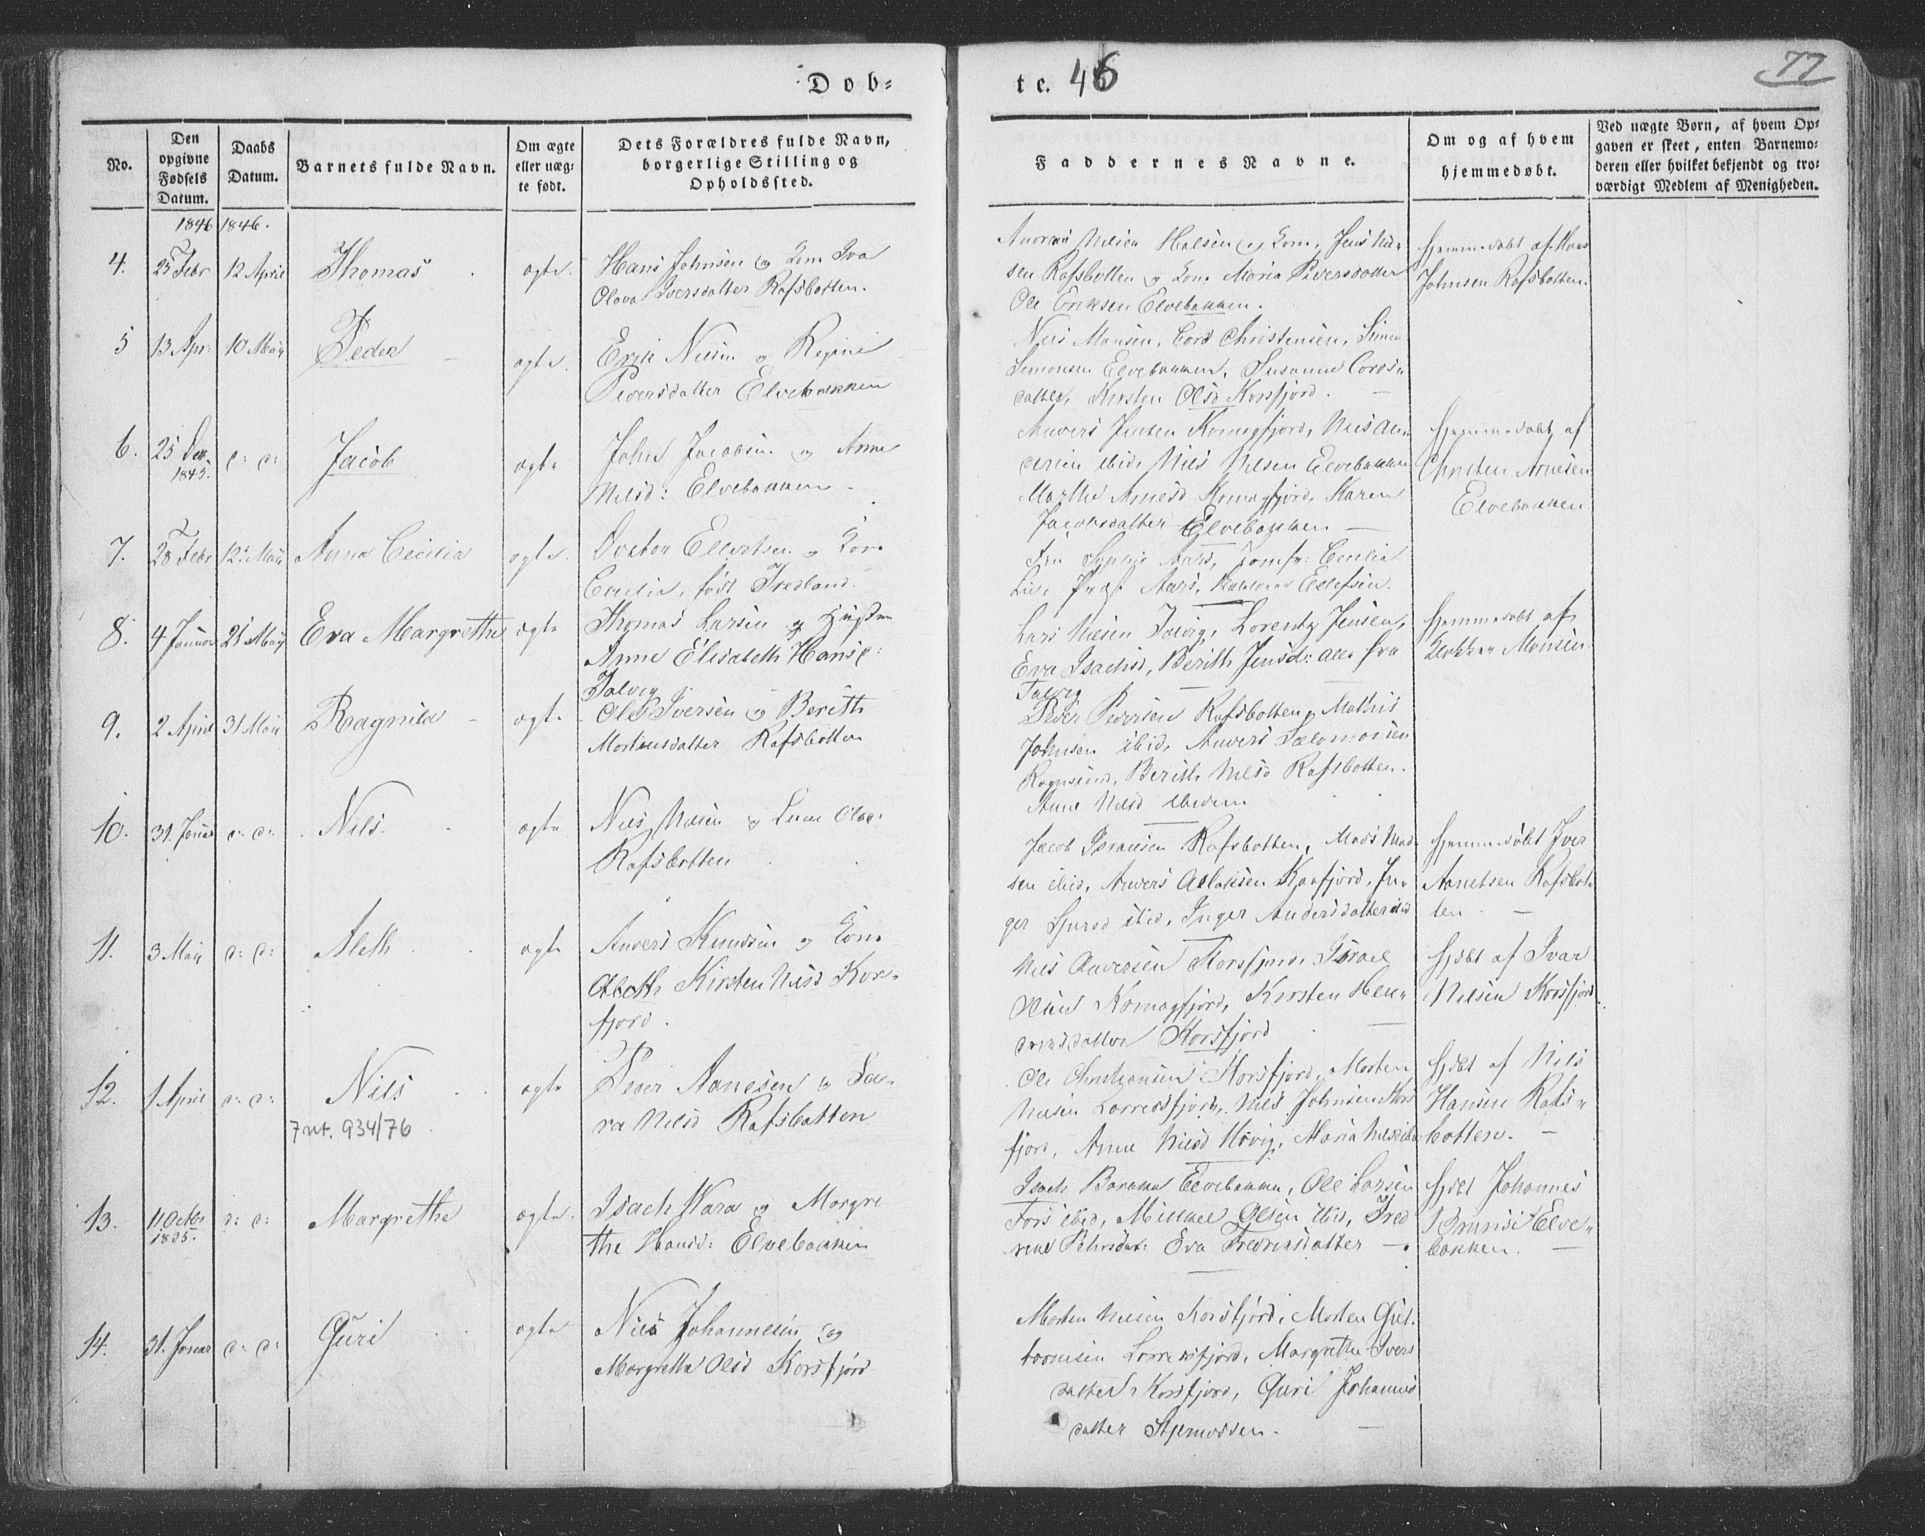 Døb=
te. 46
77
No.
Den opgivne Fødsels Datum.
Daabs Datum.
Barnets fulde Navn.
Om ægte eller uæg-te født.
Dets Forældres fulde Navn, borgerlige Stilling og Opholdssted.
Faddernes Navne.
Om og af hvem hjemmedøbt.
Ved uægte Børn, af hvem Op-gaven er skeet, enten Barnemo-deren eller hvilket bekjendt og tro-værdigt Medlem af Menigheden.
1846 1846.
4. 25 Febr 12 April Thomas ægte. Hans Johnsen og Kone Eva
Olava Iversdatter Rafsbotten.
Nilsen og Kone, Jens Niel
sen Rafsbotten og Kone Maria Pedersdatter
Ole Eriksen Elvebakken.
Hjemmedøbt af Hans
Johnsen Rafsbotten.
5 13 Apr: 10 Maÿ Peder ægte. Erik Nilsen og Regine
Pedersdatter Elvebakken
Nils Monsen, Cord Christensen, Simon
Simonsen Elvebakken, Susanne Cords-
datter, Kirsten Olsd Korsfjord.
6. 25 Dec. 1845. d: d: Jacob ægte John Jacobsen og Anne
Nilsd: Elvebakken
Anders Jensen Komagfjord, Nils An-
dersen ibid, Nils Nilsen Elvebakken
Marthe Arnesd Komagfjord, Karen
Jacobsdatter Elvebakken
Hjemmedøbt af
Christen Arnesen
Elvebakken
7. 28 Febr 12 Maÿ Anna Cecilia ægte. Doctor Ellertsen og Kone
Cecilia, født Fredland.
Aars, Jomfr: Cecilia
Aars, Ellefsen.
8. 4 Januar 21 Maÿ Eva Margrethe ægte Thomas Larsen og Hustru
Anne Elisabeth Hansd:
Talvig
Lars Nilsen Talvig, Lorentz Jensen,
Eva Isachsd, Berith Jensd: alle fra
Talvig
Hjemmedøbt af
Klokker Monsen
9. 2 April 31 Maÿ Ragnild ægte Ole Iversen og Berith
Mortensdatter Rafsbotten
Peder Pedersen Rafsbotten, Mathis
Johnsen ibid, Anders Salomonsen
Berith Nilsd Rafsbotten.
Anne Nilsd ibidem
10. 31. Januar d: d: Nils ægte Nils Nilsen og Lene Olsd:
Rafsbotten
Jacob Israelsen Rafsbotten, Mads Mad
sen ibid, Anders Aslaksen Kaafjord, In-
ger ibid, Inger Andersdatter ibid
Hjemmedøbt Iver
Aanetsen Rafsbot
ten.
11. 3 Maÿ d: d: Aleth ægte Anders Knudsen og Kone
Aleth Kirsten Nilsd Kors-
fjord.
Nils Andersen Korsfjord, Israel
Komagfjord, Kirsten Hen-
driksdatter Korsfjord
Hjdbt af Ivar
Nilsen Korsfjord
12. 1 April d: d: Nils
Fnt. 934/76
ægte Peder Aanesen og Sa-
ra Nilsd Rafsbotten
Ole Christiansen Korsfjord, Morten
Nilsen Lerredsfjord, Nils Johnsen Kors
fjord, Anne Nilsd Maria Nilsd ibid
Hjdbt af Nils
Hansen Rafs-
botten.
13. 11 Octbr 1835. d: d: Margrethe ægte. Isach Wara og Margre
the Hansd: Elvebakken
Isach Elvebakken, Ole Larsen
Fors ibid, Mikkel Olsen ibid, Fred
Eva Fredriksdatter
Hjdbt Johannes
Elve-
bakken.
14. 31. Januar d: d: Guri ægte Nils Johannesen og
Margretha Olsd Korsfjord
Morten Nilsen Korsfjord, Morten
Lerredsfjord, Margrethe Ivers
datter Korsfjord, Guri Johannes
datter Stjernodden.